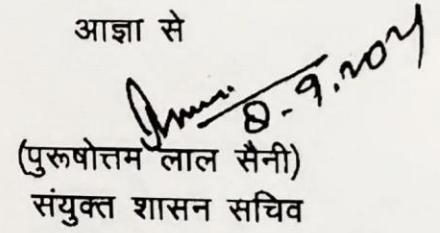 आज्ञा से
8-9.2021
(पुरूषोत्तम लाल सैनी)
संयुक्त शासन सचिव